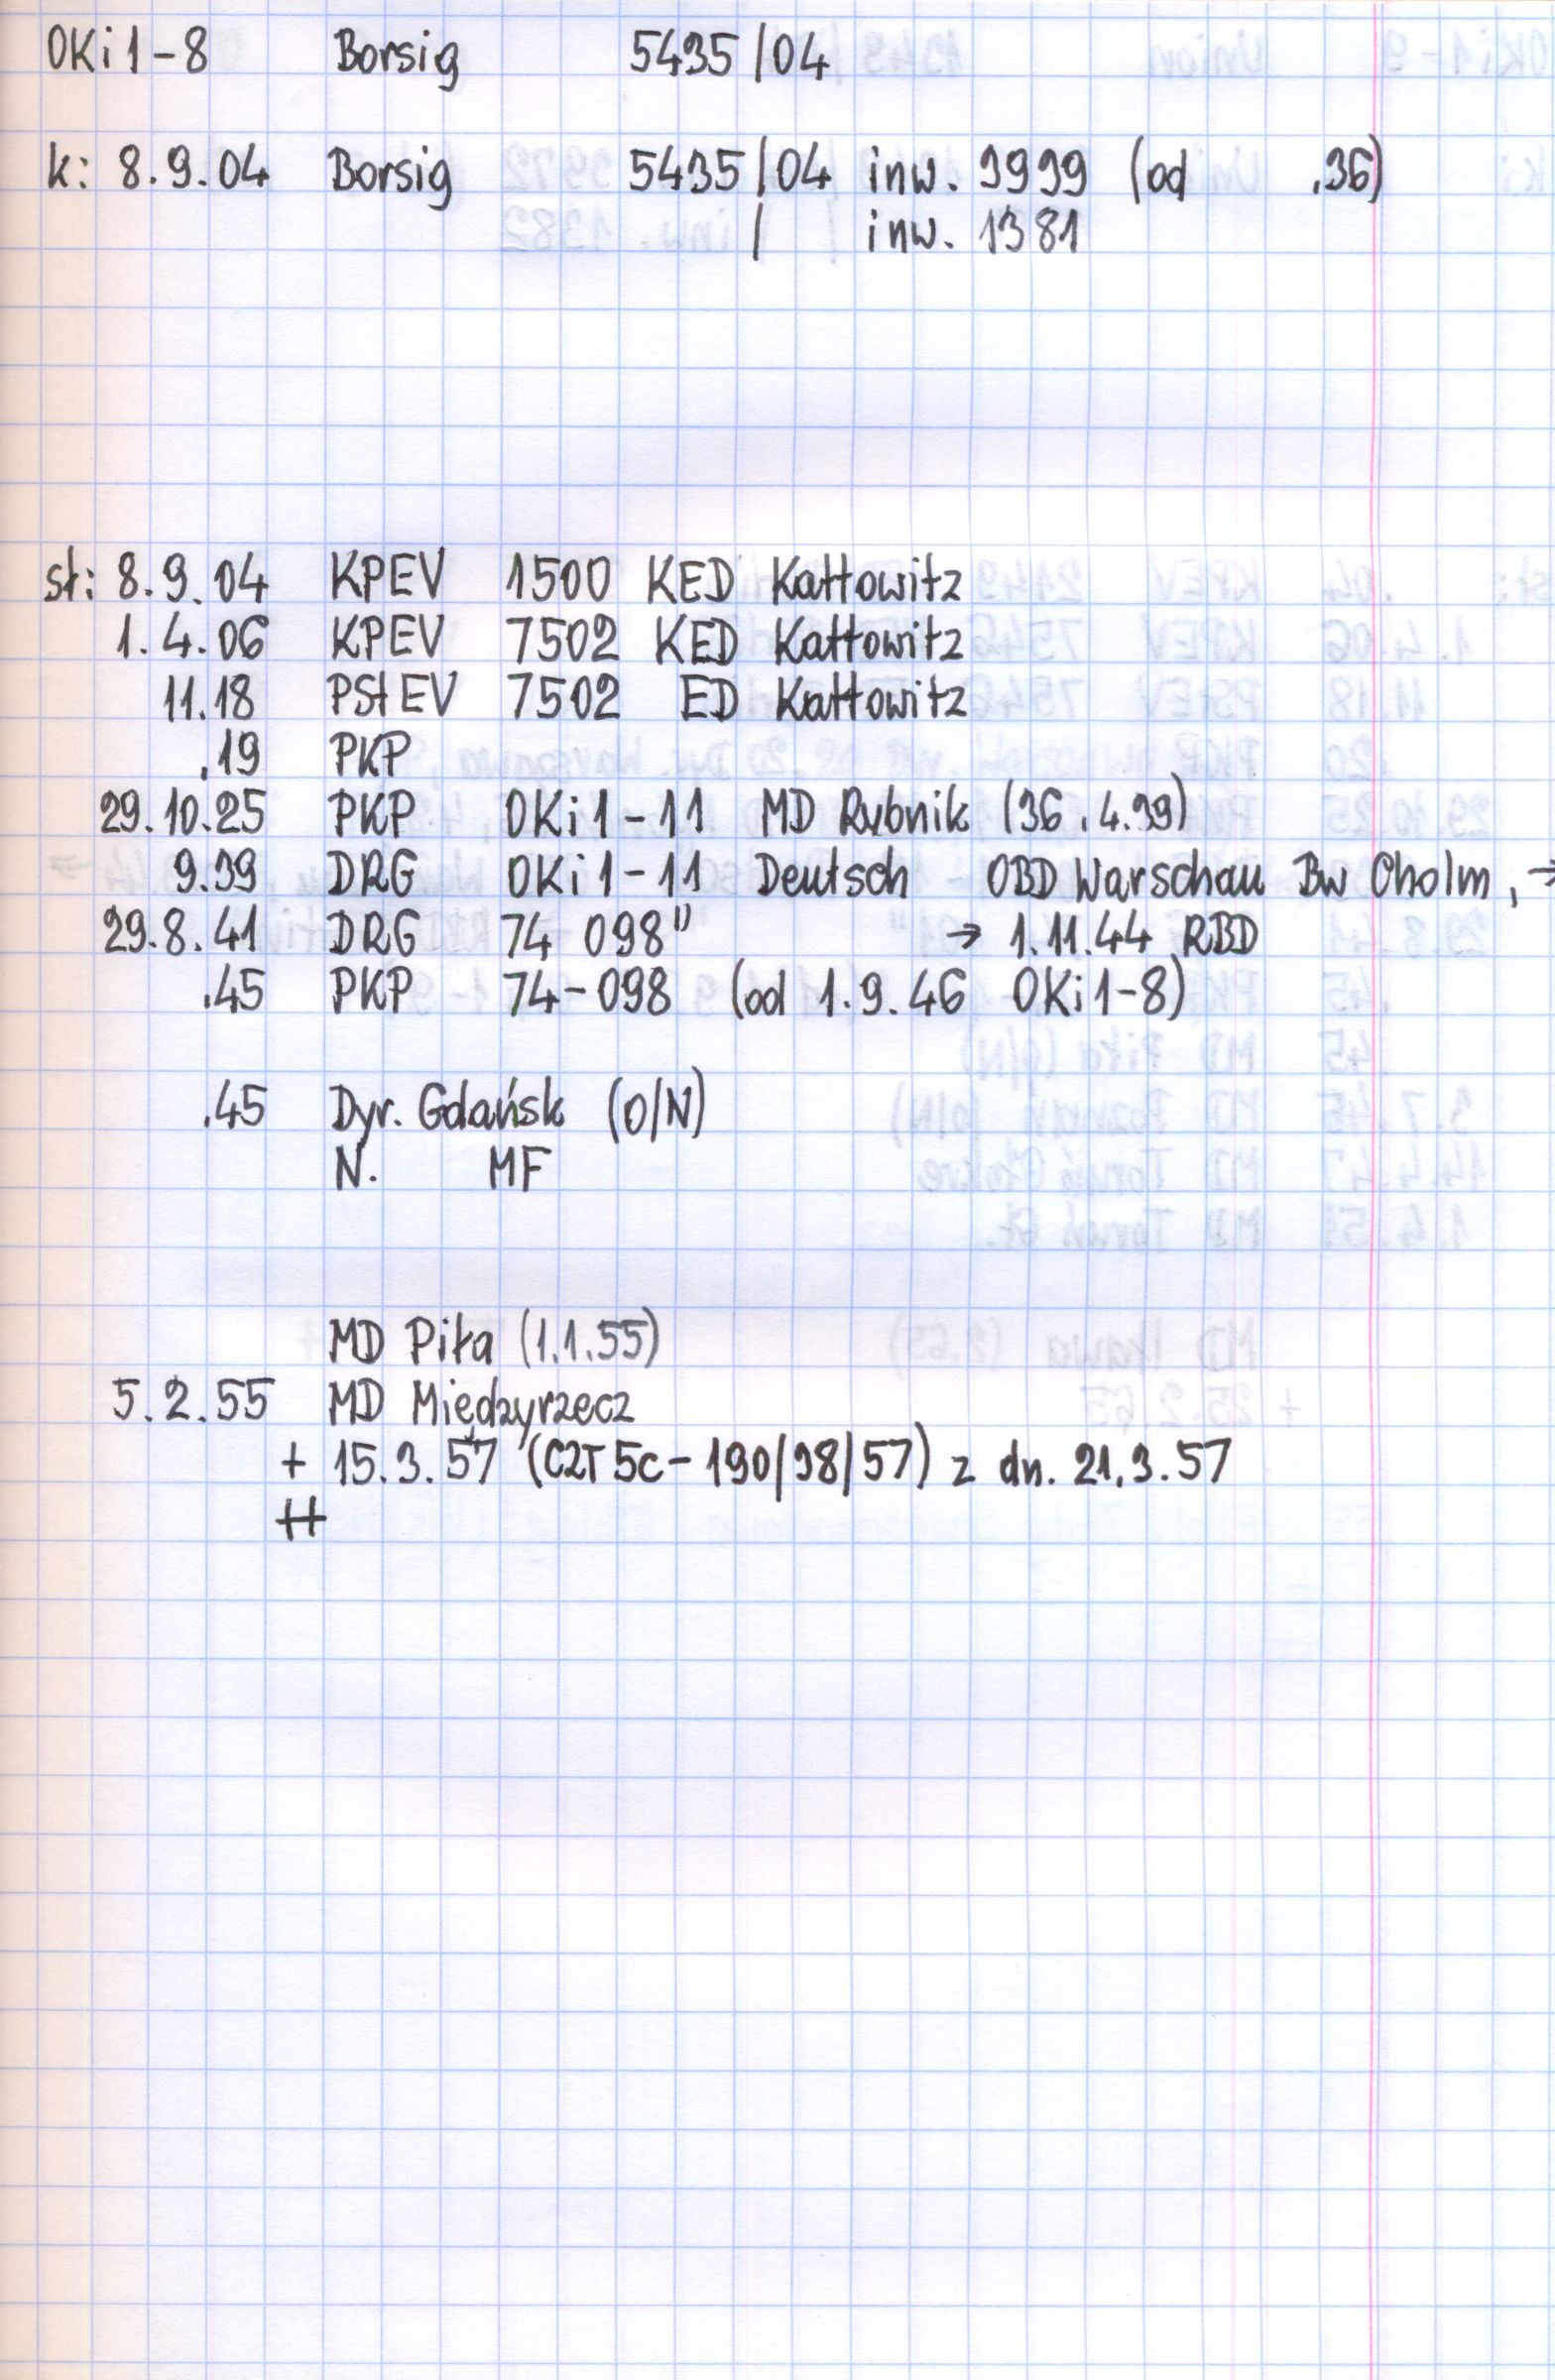 OKi1-8 Borsig 5435/04
k: 8.9.04 Borsig 5435/04 inw. 9999 (od .36)
/ inw. 1381
st: 8.9.04 KPEV 1500 KED Kattowitz
1.4.06 KPEV 7502 KED Kattowitz
11.18 PStEV 7502 ED Kattowitz
.19 PKP
29.10.25 PKP OKi1-11 MD Rybnik (36, 4.39)
9.39 DRG OKi1-11 Deutsch OBD Warschau Bw Cholm, →
29.8.41 DRG 74 098" → 1.11.44 RBD
.45 PKP 74-098 (od 1.9.46 OKi1-8)
.45 Dyr. Gdańsk (O/N)
N. MF
MD Piła (1.1.55)
5.2.55 MD Międzyrzecz
+ 15.3.57 (C2T5c-190/98/57) z dn. 21.3.57
++